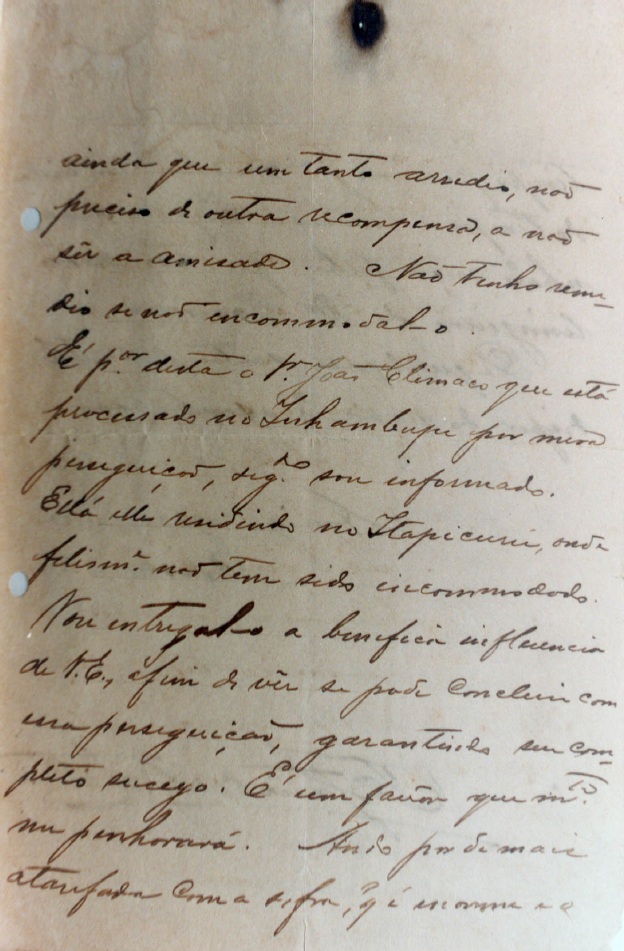 ainda que um tanto arredio, não
preciso de outra recompensa, a não
sêr a amisade. Não tenho reme-
dio se não encommodal-o.
É p.ʳ desta o Pᵉ João Climaco que está
processado no Inhambupe por mera
perseguição, seg.ᵈᵒ sou informado.
Está elle residindo no Itapicurú, onde
felism.ᵉ não tem sido incommodado.
Vou entregal-o a benefica influencia
de V.E., afim de vêr se pode concluir com
essa perseguição, garantindo seu com-
pleto sucego. É um favôr que m.ᵗᵒ
me penhorará. Ando por de mais
atarefado com a safra, q̃ é enorme e o